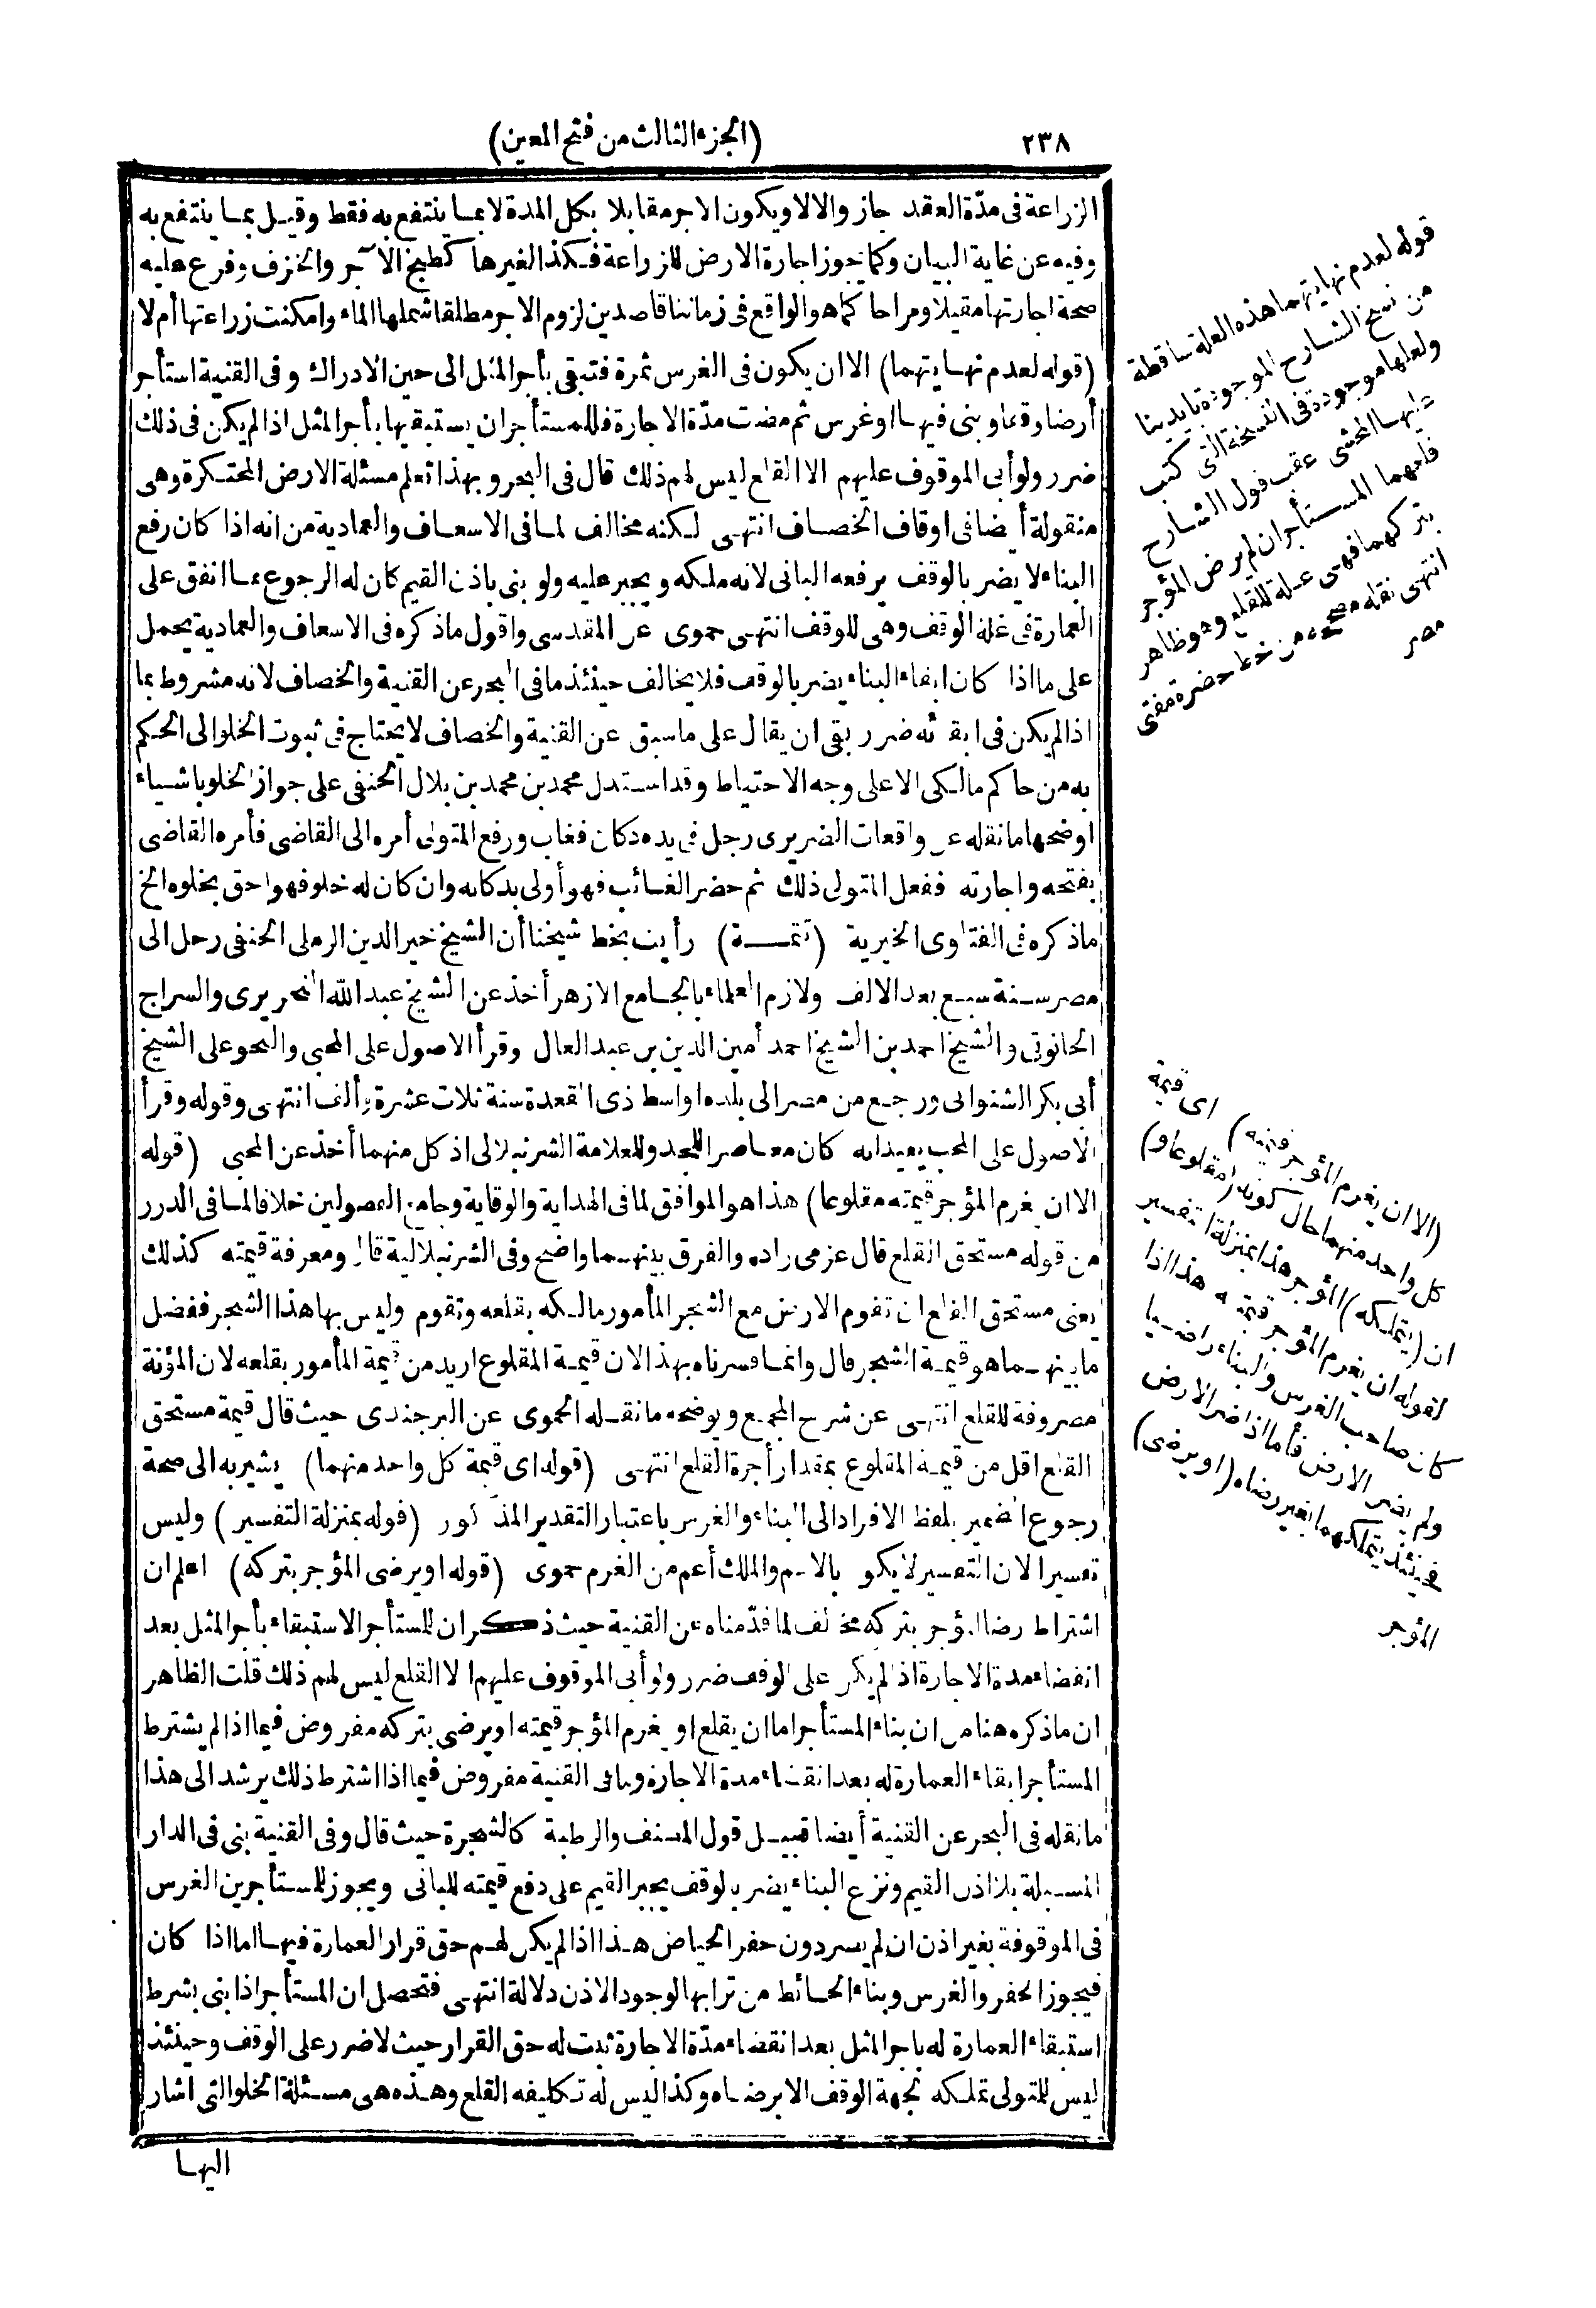 ٢٣٨
(الجزء الثالث من فتح المعين)
الزراعة فى مدّة العقد جاز والا لا ويكون الاجر مقابلا بكل المدة لا بما ينتفع به فقط وقيل بما ينتفع به
وفيه عن غاية البيان وكما يجوز اجارة الارض للزراعة فكذا لغيرها كطبخ الآجر والخزف وفرع عليه
صحة اجارتها مقيلا ومراحا كما هو الواقع فى زماننا قاصدين لزوم الاجر مطلقا شملها الماء وامكنت زراعتها أم لا
(قوله لعدم نهايتهما) الا ان يكون فى الغرس ثمرة فتبقى بأجر المثل الى حين الادراك وفى القنية استأجر
أرضا وقفا وبنى فيها او غرس ثم مضت مدّة الاجارة فللمستأجر ان يستبقيها بأجر المثل اذا لم يكن فى ذلك
ضرر ولو أبى الموقوف عليهم الا القلع ليس لهم ذلك قال فى البحر وبهذا تعلم مسئلة الارض المحتكرة وهى
منقولة أيضا فى اوقاف الخصاف انتهى لكنه مخالف لما فى الاسعاف والعمادية من انه اذا كان رفع
البناء لا يضر بالوقف يرفعه البانى لانه ملكه ويجبر عليه ولو بنى باذن القيم كان له الرجوع بما انفق على
العمارة فى غلة الوقف وهى للوقف انتهى حموى عن المقدسى واقول ما ذكره فى الاسعاف والعمادية يحمل
على ما اذا كان ابقاء البناء يضر بالوقف فلا يخالف حينئذ ما فى البحر عن القنية والخصاف لانه مشروط بما
اذا لم يكن فى ابقائه ضرر بقى ان يقال على ما سبق عن القنية والخصاف لا يحتاج فى ثبوت الخلو الى الحكم
به من حاكم مالكى الا على وجه الاحتياط وقد استدل محمد بن محمد بن بلال الحنفى على جواز الخلو باشياء
اوضحها ما نقله عن واقعات الضريرى رجل فى يده دكان فغاب ورفع المتولى أمره الى القاضى فأمره القاضى
بفتحه واجارته ففعل المتولى ذلك ثم حضر الغائب فهو أولى بدكانه وان كان له خلو فهو احق بخلوه الخ
ما ذكره فى الفتاوى الخيرية (تتمـة) رأيت بخط شيخنا أن الشيخ خير الدين الرملى الحنفى رحل الى
مصر سنة سبع بعد الالف ولازم العلماء بالجامع الازهر أخذ عن الشيخ عبد الله النحريرى والسراج
الحانوتى والشيخ احمد بن الشيخ احمد أمين الدين بن عبد العال وقرأ الاصول على المحبى والنحو على الشيخ
أبى بكر الشنوانى ورجع من مصر الى بلده اواسط ذى القعدة سنة ثلاث عشرة وألف انتهى وقوله وقرأ
الاصول على المحب يفيد انه كان معاصرا للجد وللعلامة الشرنبلالى اذ كل منهما أخذ عن المحبى (قوله
الا ان يغرم المؤجر قيمته مقلوعا) هذا هو الموافق لما فى الهداية والوقاية وجامع الفصولين خلافا لما فى الدرر
من قوله مستحق القلع قال عزمى زاده والفرق بينهما واضح وفى الشرنبلالية قال ومعرفة قيمته كذلك
يعنى مستحق القلع ان تقوم الارض مع الشجر المأمور مالكه بقلعه وتقوم وليس بها هذا الشجر ففضل
ما بينهما هو قيمة الشجر قال وانما فسرناه بهذا لان قيمة المقلوع ازيد من قيمة المأمور بقلعه لان المؤنة
مصروفة للقلع انتهى عن شرح المجمع ويوضحه ما نقله الحموى عن البرجندى حيث قال قيمة مستحق
القلع اقل من قيمة المقلوع بمقدار أجرة القلع انتهى (قوله اى قيمة كل واحد منهما) يشير به الى صحة
رجوع الضمير بلفظ الافراد الى البناء والغرس باعتبار التقدير المذكور (قوله بمنزلة التفسير) وليس
تفسيرا لان التفسير لا يكون بالاعم والملك أعم من الغرم حموى (قوله او يرضى المؤجر بتركه) اعلم ان
اشتراط رضا المؤجر بتركه مخالف لما قدّمناه عن القنية حيث ذكر ان للمستأجر الاستبقاء بأجر المثل بعد
انقضاء مدة الاجارة اذا لم يكن على الوقف ضرر ولو أبى الموقوف عليهم الا القلع ليس لهم ذلك قلت الظاهر
ان ما ذكره هنا من ان بناء المستأجر اما ان يقلع او يغرم المؤجر قيمته او يرضى بتركه مفروض فيما اذا لم يشترط
المستأجر ابقاء العمارة له بعد انقضاء مدة الاجارة وما فى القنية مفروض فيما اذا اشترط ذلك يرشد الى هذا
ما نقله فى البحر عن القنية أيضا قبيل قول المصنف والرطبة كالشجرة حيث قال وفى القنية بنى فى الدار
المسبلة بلا اذن القيم ونزع البناء يضر بالوقف يجبر القيم على دفع قيمته للبانى ويجوز للمستأجرين الغرس
فى الموقوفة بغير اذن ان لم يضر دون حفر الحياض هذا اذا لم يكن لهم حق قرار العمارة فيها اما اذا كان
فيجوز الحفر والغرس وبناء الحائط من ترابها لوجود الاذن دلالة انتهى فتحصل ان المستأجر اذا بنى بشرط
استبقاء العمارة له باجر المثل بعد انقضاء مدّة الاجارة ثبت له حق القرار حيث لا ضرر على الوقف وحينئذ
ليس للمتولى تملكه لجهة الوقف الا برضاه وكذا ليس له تكليفه القلع وهذه هى مسئلة الخلو التى اشار
اليها
قوله لعدم نهايتهما هذه العلة ساقطة
من نسخ الشارح الموجودة بايدينا
ولعلها موجودة فى النسخة التى كتب
عليها المحشى عقب قول الشارح
قلعهما المستأجر ان لم يرض المؤجر
بتركهما فهى علة للقلع وهو ظاهر
انتهى نقله مصححه من خط حضرة مفتى
مصر
(الا ان يغرم المؤجر قيمته) اى قيمة
كل واحد منهما حال كونه (مقلوعا و)
ان (يتملكه) المؤجر هذا بمنزلة التفسير
لقوله ان يغرم المؤجر قيمته هذا اذا
كان صاحب الغرس والبناء راضيا
ولم يضر الارض فأما اذا ضر الارض
فحينئذ يتملكهما بغير رضاه (او يرضى)
المؤجر